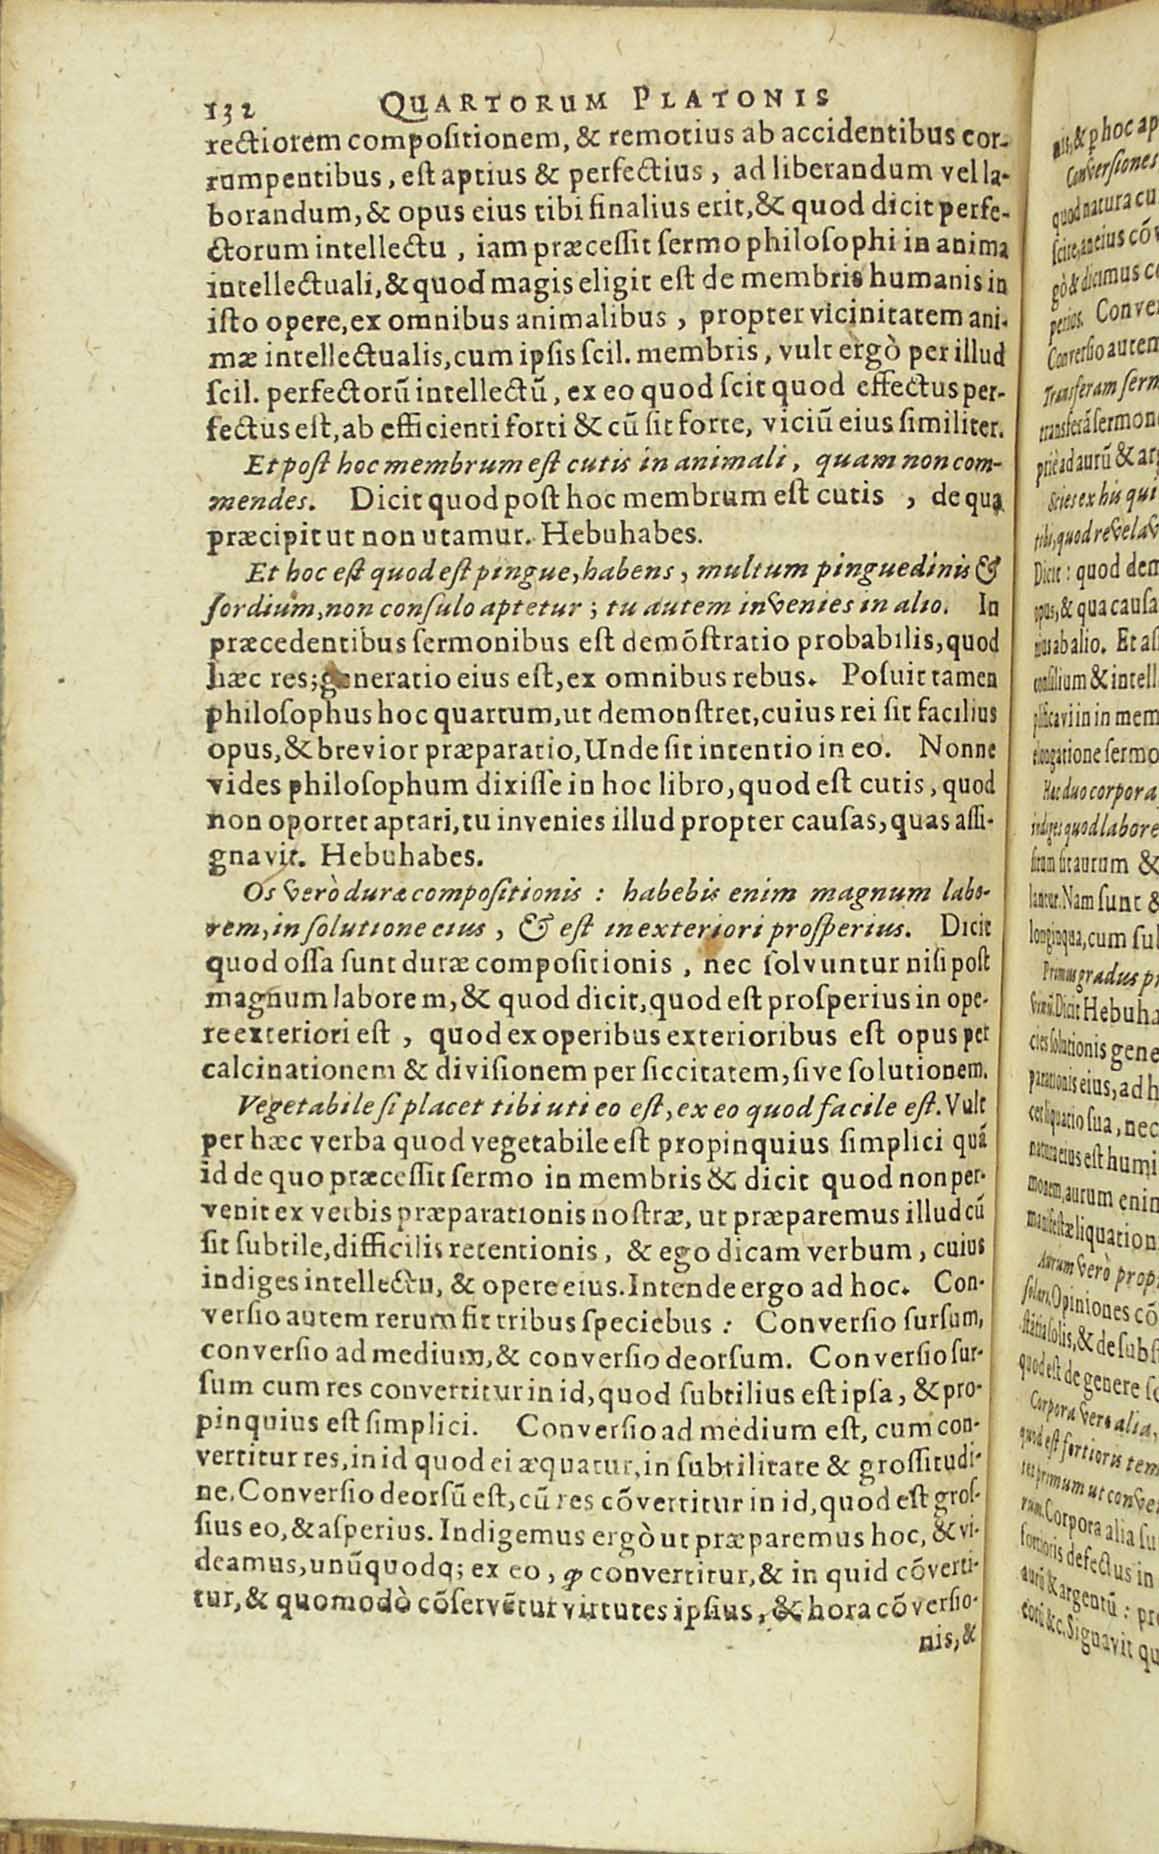 132 QUARTORUM PLATONIS
rectiorem compositionem, & remotius ab accidentibus cor-
rumpentibus, est aptius & perfectius, ad liberandum vel la-
borandum, & opus eius tibi finalius erit, & quod dicit perfe-
ctorum intellectu, iam præcessit sermo philosophi in anima
intellectuali, & quod magis eligit est de membris humanis in
isto opere, ex omnibus animalibus, propter vicinitatem ani-
mæ intellectualis, cum ipsis scil. membris, vult ergò per illud
scil. perfectorũ intellectũ, ex eo quod scit quod effectus per-
fectus est, ab efficienti forti & cũ sit forte, viciũ eius similiter.
Et post hoc membrum est cutis in animali, quam non com-
mendes. Dicit quod post hoc membrum est cutis, de qua
præcipit ut non utamur. Hebuhabes.
Et hoc est quod est pingue, habens, multum pinguedinis &
sordium, non consulo aptetur; tu autem invenies in alio. In
præcedentibus sermonibus est demõstratio probabilis, quod
hæc res; generatio eius est, ex omnibus rebus. Posuit tamen
philosophus hoc quartum, ut demonstret, cuius rei sit facilius
opus, & brevior præparatio, Unde sit intentio in eo. Nonne
vides philosophum dixisse in hoc libro, quod est cutis, quod
non oportet aptari, tu invenies illud propter causas, quas assi-
gnavit. Hebuhabes.
Os verò duræ compositionis: habebis enim magnum labo-
rem, in solutione eius, & est in exteriori prosperius. Dicit
quod ossa sunt duræ compositionis, nec solvuntur nisi post
magnum laborem, & quod dicit, quod est prosperius in ope-
re exteriori est, quod ex operibus exterioribus est opus per
calcinationem & divisionem per siccitatem, sive solutionem.
Vegetabile si placet tibi uti eo est, ex eo quod facile est. Vult
per hæc verba quod vegetabile est propinquius simplici quã
id de quo præcessit sermo in membris & dicit quod non per-
venit ex verbis præparationis nostræ, ut præparemus illud cũ
sit subtile, difficilis retentionis, & ego dicam verbum, cuius
indiges intellectu, & opere eius. Intende ergo ad hoc. Con-
versio autem rerum fit tribus speciebus: Conversio sursum,
conversio ad medium, & conversio deorsum. Conversio sur-
sum cum res convertitur in id, quod subtilius est ipsa, & pro-
pinquius est simplici. Conversio ad medium est, cum con-
vertitur res, in id quod ei æquatur, in subtilitate & grossitudi-
ne. Conversio deorsũ est, cũ res cõvertitur in id, quod est gros-
sius eo, & asperius. Indigemus ergò ut præparemus hoc, & vi-
deamus, unũquodq; ex eo, ꝙ convertitur, & in quid cõverti-
tur, & quomodò cõservẽtur virtutes ipsius, & hora cõversio-
nis, &
nis, & ꝑ hoc ap
Conversiones
quod natura cu
scire, an eius cõv
gò & dicimus co
perios. Conver
Conversio autem
Transferam serm
transferã sermon
priè ad aurũ & arg
Scies ex his qui
tibi, quod revelav
Dicit: quod dem
opus, & qua causa
nius ab alio. Et as
consilium & intell
plificavi in in mem
elongatione sermo
Hac duo corpora
indiges quod labore
situm sit aurum &
lantur. Nam sunt &
longinqua, cum sul
Primus gradus pr
Dicit Hebuha
cies solutionis gene
parationis eius, ad h
cet liquatio sua, nec
natura eius est humi
monem, aurum enim
manifestæ liquation
Aurum verò prop
Opiniones cõ
solis, & de subst
quod est de genere so
Corpora vero alia,
quid est fortioris tem
primum ut conver
rum. Corpora alia su
fortioris defectus in
aurũ & argentũ: pro
&c. Signavit qu